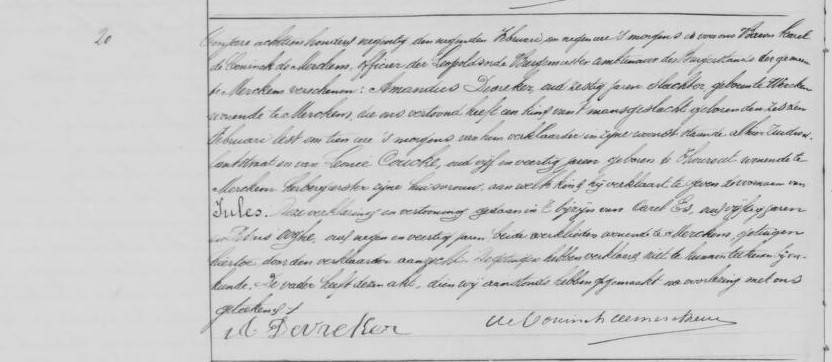 20
achttien honderd negentig den negenden Februari en negen ure 's morgens is voor ons Baron Karel
de Coninck de Merckem, officier der Leopoldsorde Burgemeester ambtenaar des Burgerstands der gemeen
te Merckem verschenen: Amandus Devreker, oud zestig jaren slachter, geboren te Merckem
wonende te Merckem, die ons vertoond heeft een kind van 't mansgeslacht geboren den
Februari lest om tien ure 's morgens van hem verklaarder in zijne woonst staande alhier
en van Leonie Coucke, oud vijf en veertig jaren geboren te wonende te
Merckem herbergierster zijne huisvrouw, aan welk kind hij verklaart te geven de voornaam van
Jules. Deze verklaring en vertooning gedaan in 't bijzijn van Carel Es, oud vijftig jaren
en Petrus oud negen en veertig jaren, beide werklieden wonende te Merckem, getuigen
hiertoe door den verklaarder aangezocht. De getuigen hebben verklaard niet te kunnen teekenen
De vader heeft dezen akt, dien wij aanstonds hebben opgemaakt na voorlezing met ons
geteekend
A Devreker de Coninck de Merckem